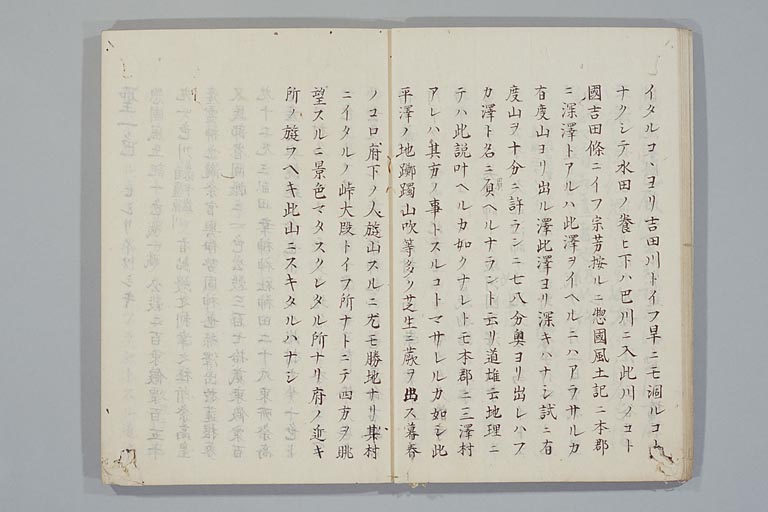 イタルコヽヨリ吉田川トイフ旱ニモ涸ルコト
ナクシテ水田ノ養ヒ下ハ巴川ニ入此川ノコト
國吉田條ニイフ宗芳按ルニ惣國風土記ニ本郡
ニ深澤トアルハ此澤ヲイヘルニハアラサルカ
有度山ヨリ出ル澤此澤ヨリ深キハナシ試ニ有
度山ヲ十分ニ許ランニ七八分奥ヨリ出レハフ
カ澤ト名ニ負ヘルナラント云リ道雄云地理ニ
テハ此説叶ヘルカ如クナレトモ本郡ニ三澤村
アレハ其方ノ事トスルコトマサレルカ如シ此
平澤ノ地躑躅山吹等多ク芝生ニ蕨ヲ出ス暮春
ノコロ府下ノ人遊山スルニ尤モ勝地ナリ其村
ニイタルノ峠大段トイフ所ナトニテ西方ヲ眺
望スルニ景色マタスクレタル所ナリ府ノ近キ
所ノ遊フヘキ此山ニスキタルハナシ